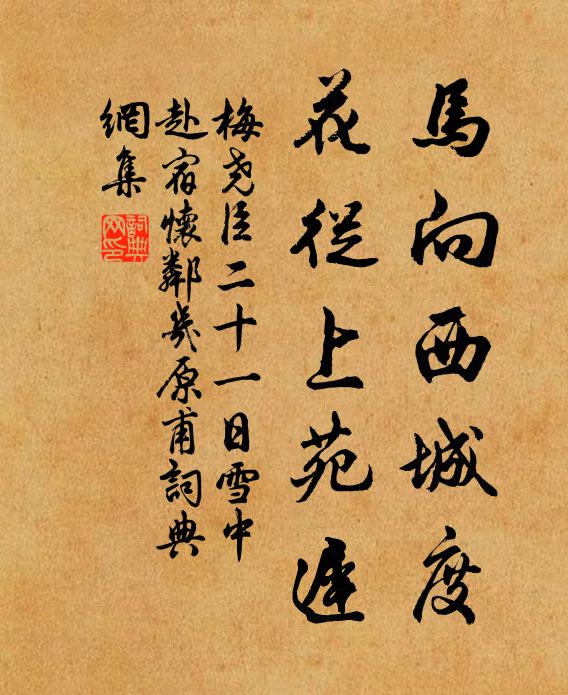 馬向西城度
花從上苑遲
梅堯臣二十一日雪中
赴宿懷鄰幾原甫詞典
網集
詞典
網印